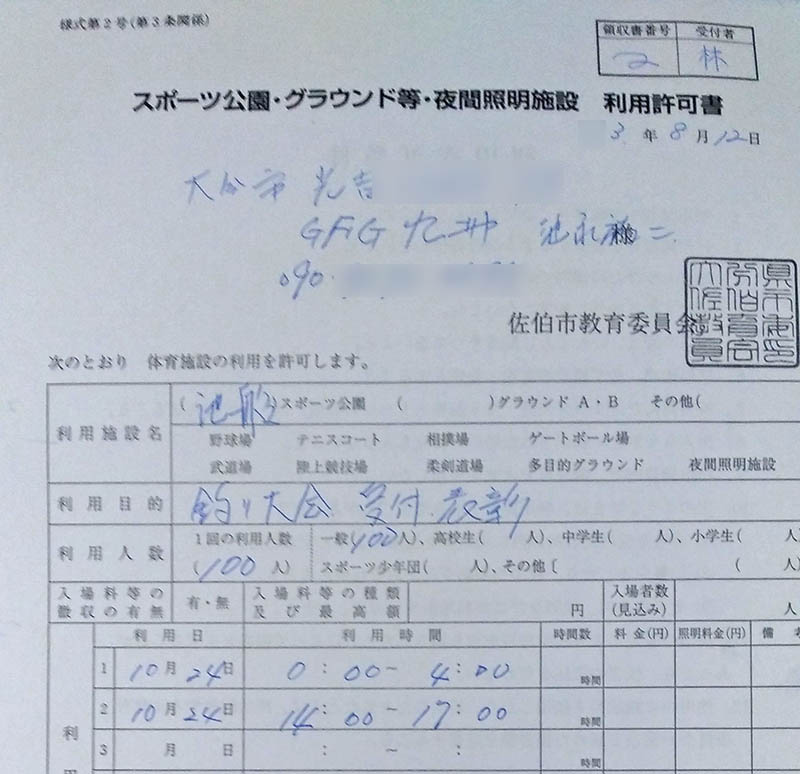 様式第2号(第3条関係)
領収書番号 受付者
林
スポーツ公園・グラウンド等・夜間照明施設 利用許可書
3年8月12日
大分市 光吉
GFG 九州 池永 様
090
佐伯市教育委員会
次のとおり 体育施設の利用を許可します。
利用施設名 (池船)スポーツ公園 ( )グラウンド A・B その他(
野球場 テニスコート 相撲場 ゲートボール場
武道場 陸上競技場 柔剣道場 多目的グラウンド 夜間照明施設
利用目的 釣り大会 受付・表彰
利用人数 1回の利用人数 一般(100人)、高校生( 人)、中学生( 人)、小学生( 人)
(100 人) スポーツ少年団( 人)、その他〔 ( 人)
入場料等の徴収の有無 有・無 入場料等の種類及び最高額 円 入場者数(見込み) 人
利用日 利用時間 時間数 料金(円) 照明料金(円) 備考
1 10月24日 0:00~4:00 時間
2 10月24日 14:00~17:00 時間
利 3 月 日 : ~ : 時間